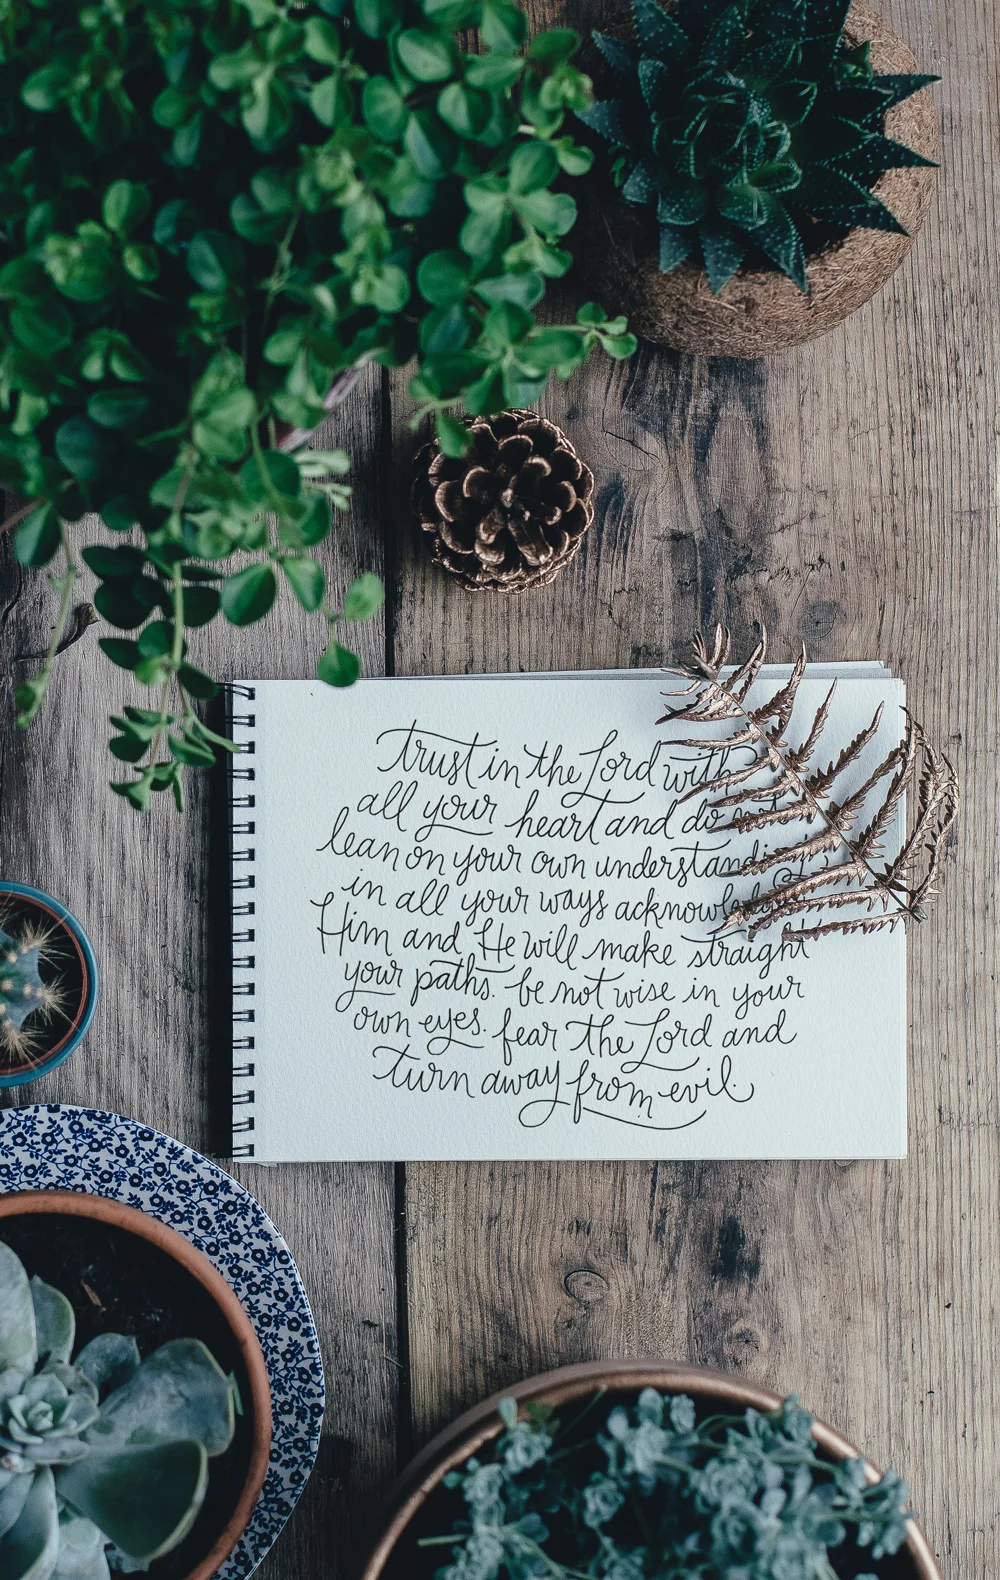 trust in the Lord with
all your heart and do not
lean on your own understanding
in all your ways acknowledge
Him and He will make straight
your paths. be not wise in your
own eyes. fear the Lord and
turn away from evil.